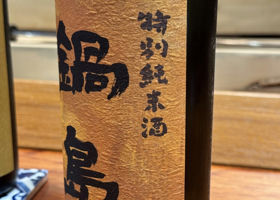 特別純米酒
鍋島